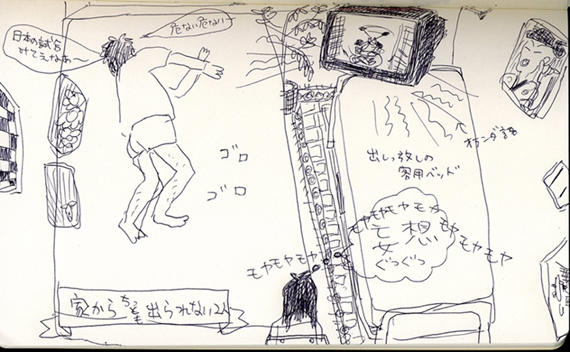 日本の試合
みてえなあ〜
危ない危ない〜
ゴロ
ゴロ
オランダ語
出しっ放しの
客用ベッド
モヤモヤモヤモヤ
モヤモヤモヤモヤ
妄想
ぐつぐつ
モヤモヤモヤ
家から出られない2人